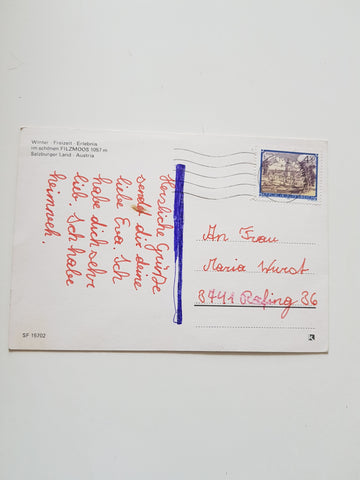 Winter · Freizeit · Erlebnis
im schönen FILZMOOS 1057 m
Salzburger Land · Austria
Herzliche Grüße
sendet dir deine
liebe Eva. Ich
habe dich sehr
lieb. Ich habe
heimweh.
An Frau
Maria Wurst
36
SF 15702
K